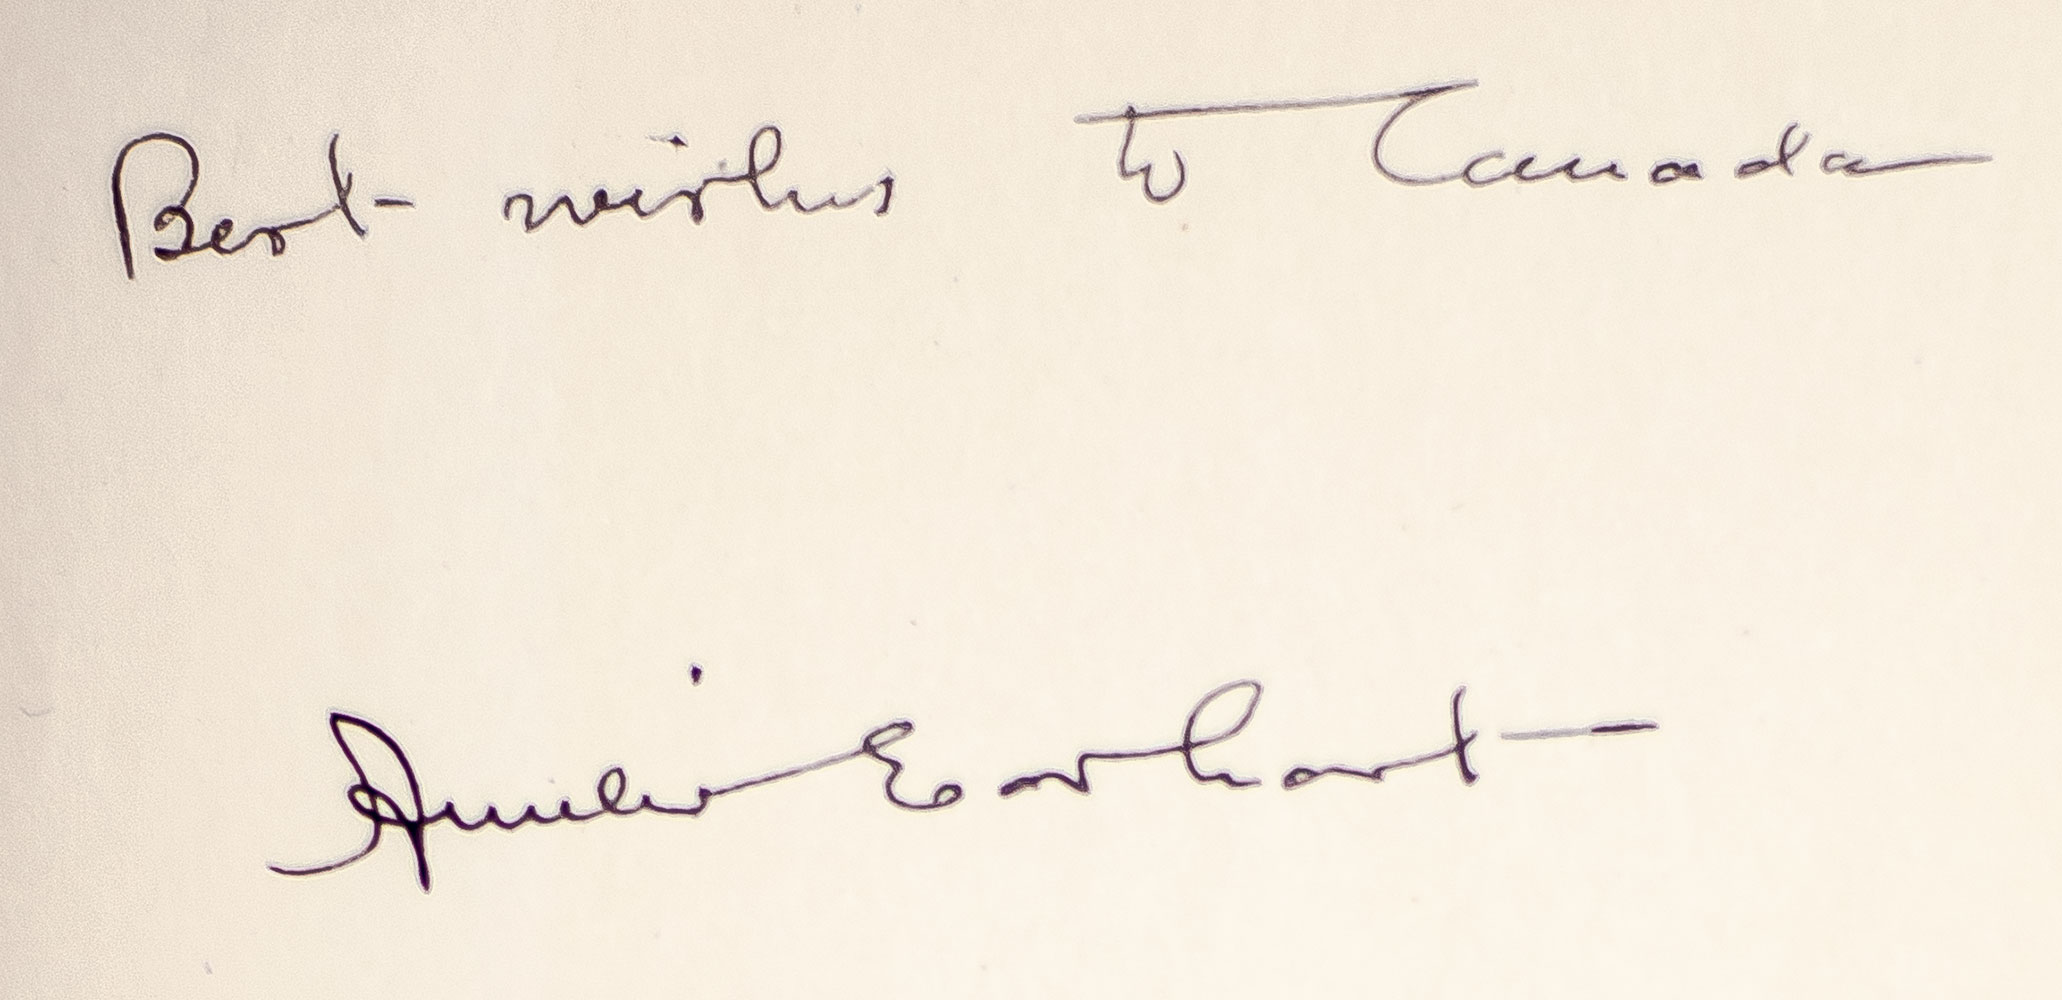 Best wishes to Canada
Amelia Earhart